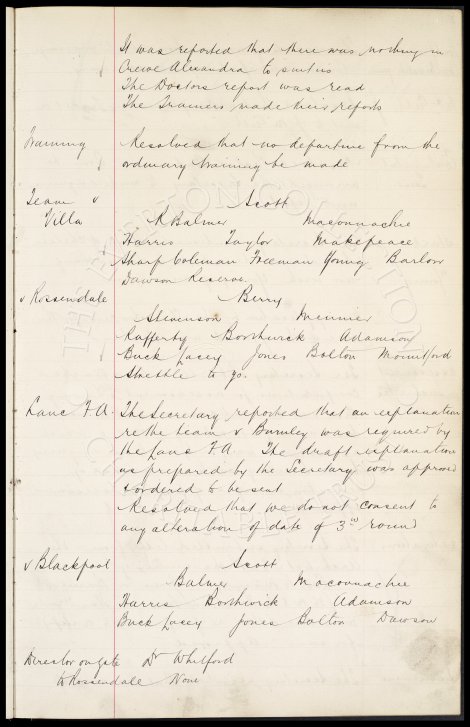 It was reported that there was nothing in
Crewe Alexandra to suit us
The Doctors report was read
The Trainers made their reports
Training Resolved that no departure from the
ordinary training be made
Team v Scott
Villa R Balmer Macconnachie
Harris Taylor Makepeace
Sharp Coleman Freeman Young Barlow
Dawson Reserve
v Rossendale Berry
Stevenson Meunier
Rafferty Borthwick Adamson
Buck Lacey Jones Bolton Mountford
Strettle to go.
Lanc F.A. The Secretary reported that an explanation
re the team v Burnley was required by
the Lanc F.A. The draft explanation
as prepared by the Secretary was approved
& ordered to be sent
Resolved that we do not consent to
any alteration of date of 3rd round
v Blackpool Scott
Balmer Macconnachie
Harris Borthwick Adamson
Buck Lacey Jones Bolton Dawson
Director on gate Dr Whitford
to Rossendale None